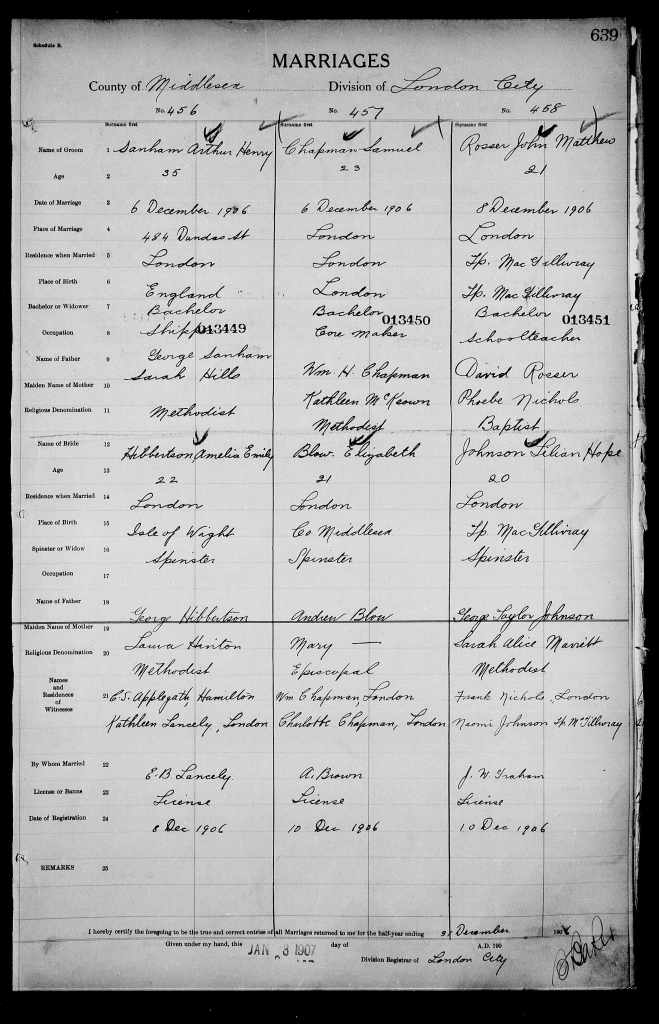 Schedule B.
639
MARRIAGES
County of Middlesex Division of London City
No. 456 No. 457 No. 458
Surname first Surname first Surname first
Name of Groom 1 Sanham Arthur Henry Chapman Samuel Rosser John Matthew
Age 2 35 23 21
Date of Marriage 3 6 December 1906 6 December 1906 8 December 1906
Place of Marriage 4 484 Dundas St London London
Residence when Married 5 London London Tp. MacGillivray
Place of Birth 6 England London Tp. MacGillivray
Bachelor or Widower 7 Bachelor Bachelor Bachelor
013449 013450 013451
Occupation 8 Shipper Core Maker Schoolteacher
Name of Father 9 George Sanham Wm H. Chapman David Rosser
Maiden Name of Mother 10 Sarah Hills Kathleen McKeown Phoebe Nichols
Religious Denomination 11 Methodist Methodist Baptist
Name of Bride 12 Hibbertson, Amelia Emily Blow. Elizabeth Johnson Lilian Hope
Age 13 22 21 20
Residence when Married 14 London London London
Place of Birth 15 Isle of Wight Co Middlesex Tp MacGillivray
Spinster or Widow 16 Spinster Spinster Spinster
Occupation 17
Name of Father 18 George Hibbertson Andrew Blow George Taylor Johnson
Maiden Name of Mother 19 Laura Hinton Mary — Sarah Alice Marritt
Religious Denomination 20 Methodist Episcopal Methodist
Names
and
Residences
of
Witnesses
21 C.S. Applegath, Hamilton Wm Chapman, London Frank Nichols, London
Kathleen Lancely, London Charlotte Chapman, London Naomi Johnson Tp McGillivray
By Whom Married 22 E. B. Lancely. A. Brown J. W. Graham
License or Banns 23 License License License
Date of Registration 24 8 Dec 1906 10 Dec 1906 10 Dec 1906
REMARKS 25
I hereby certify the foregoing to be the true and correct entries of all Marriages returned to me for the half-year ending 31 December 190
Given under my hand, this JAN 3 1907 day of A.D. 190
Division Registrar of London City